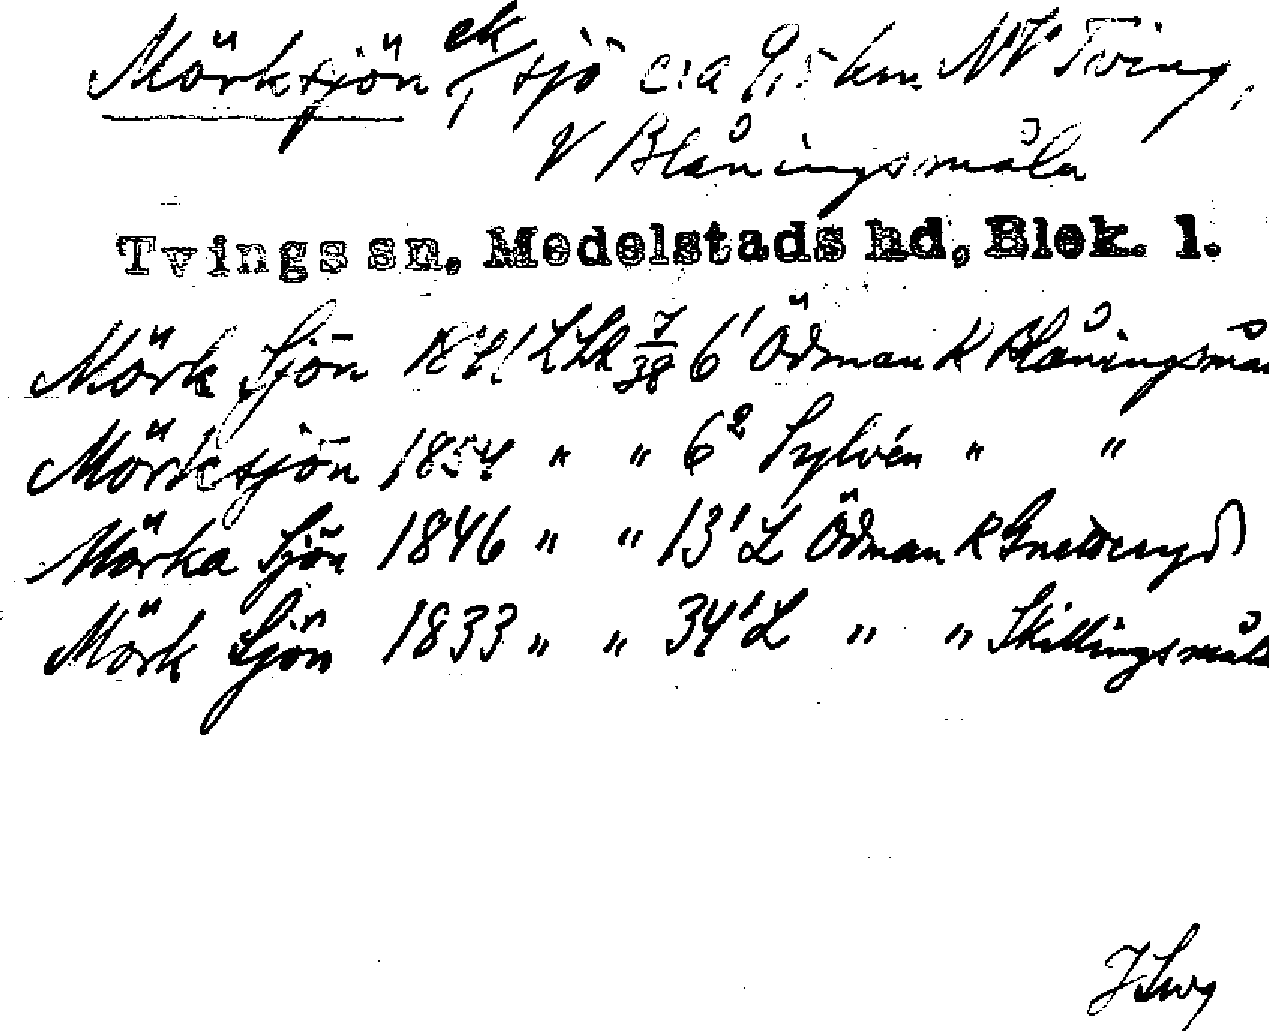 Mörksjön ek/, sjö c:a 9,5 km NV Tving,
V Blåningsmåla
Tvings sn. Medelstads hd, Blek. l.
Mörk Sjön LSk 7/38 6' Ödman K Blåningsmå
Mörksjön 1854 " " 6² Sylvén " "
Mörka Sjön 1846 " " 13' L Ödman K
Mörk Sjön 1833 " " 34' L " " Skillingsmåla